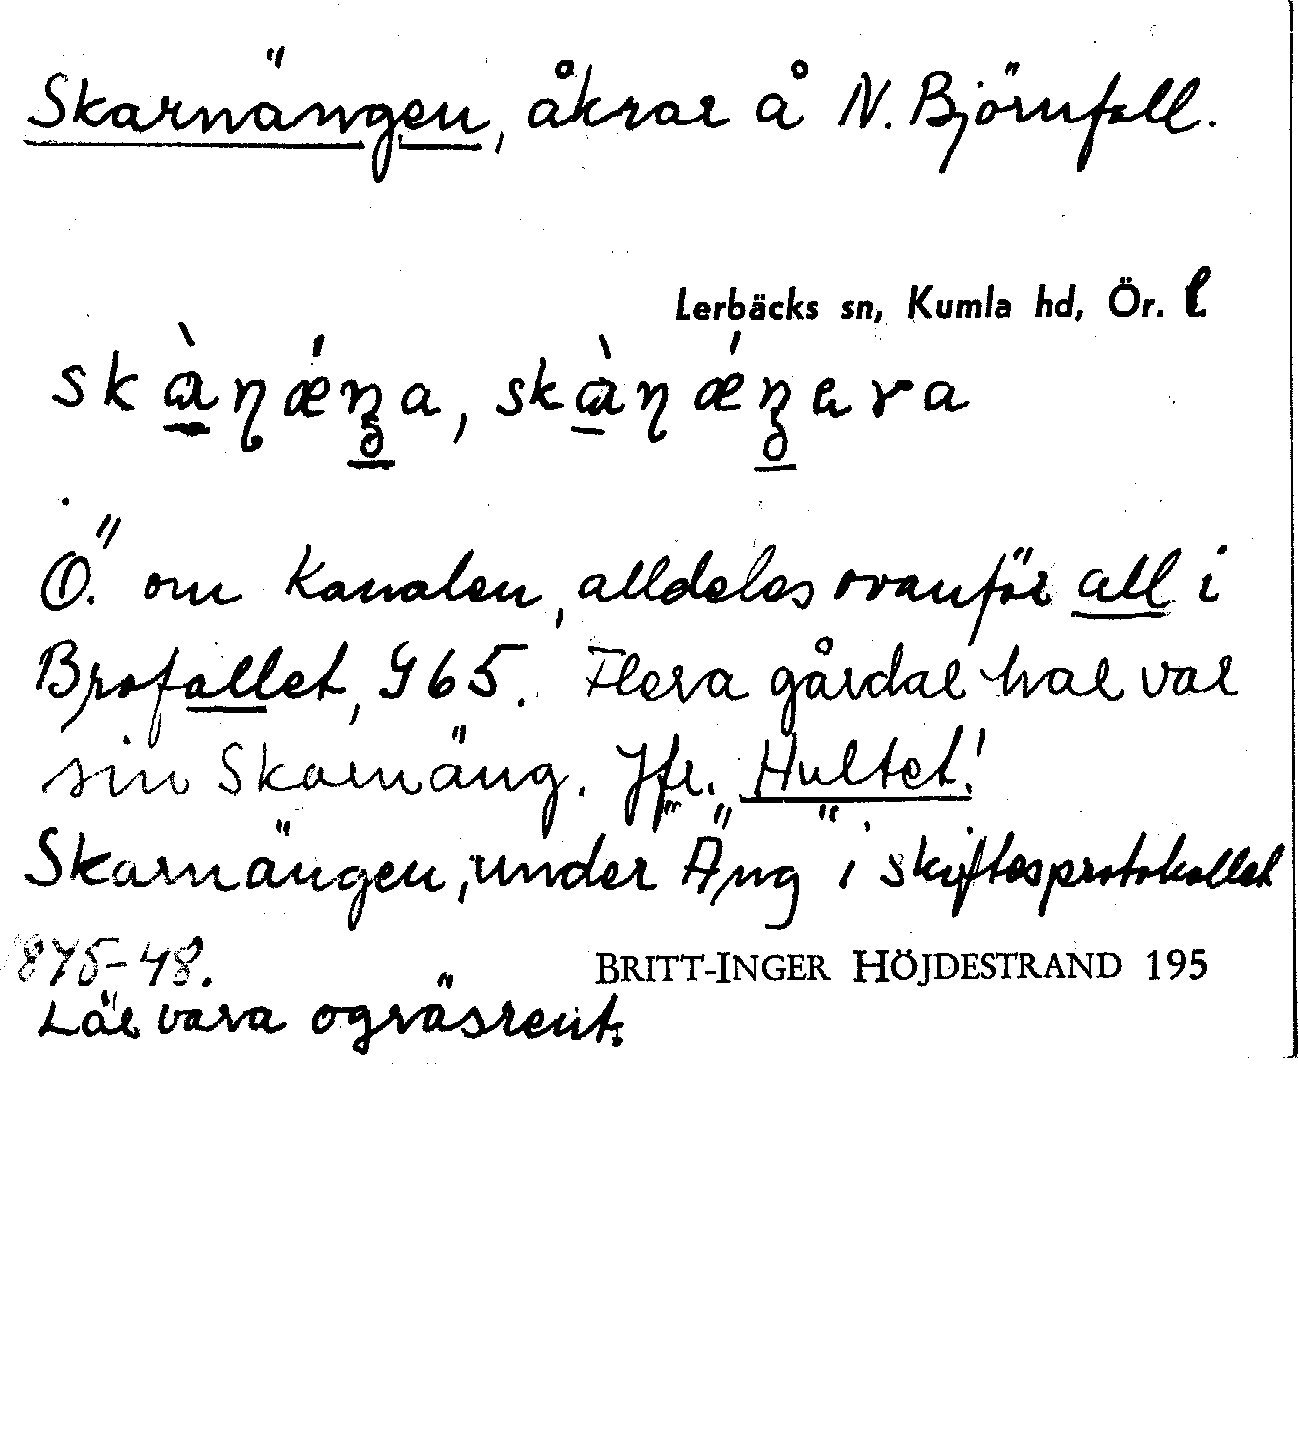 Skarnängen, åkrar å N. Björnfall.
Lerbäcks sn, Kumla hd, Ör. l.
Ö. om Kanalen, alldeles ovanför all i
Brofallet, 965. Flera gårdar har var
sin Skarnäng. Jfr. Hultet!
Skarnängen, under "Äng" i skiftesprotokollet
1845-48.
BRITT-INGER HÖJDESTRAND 195
Lär vara ogräsrent.